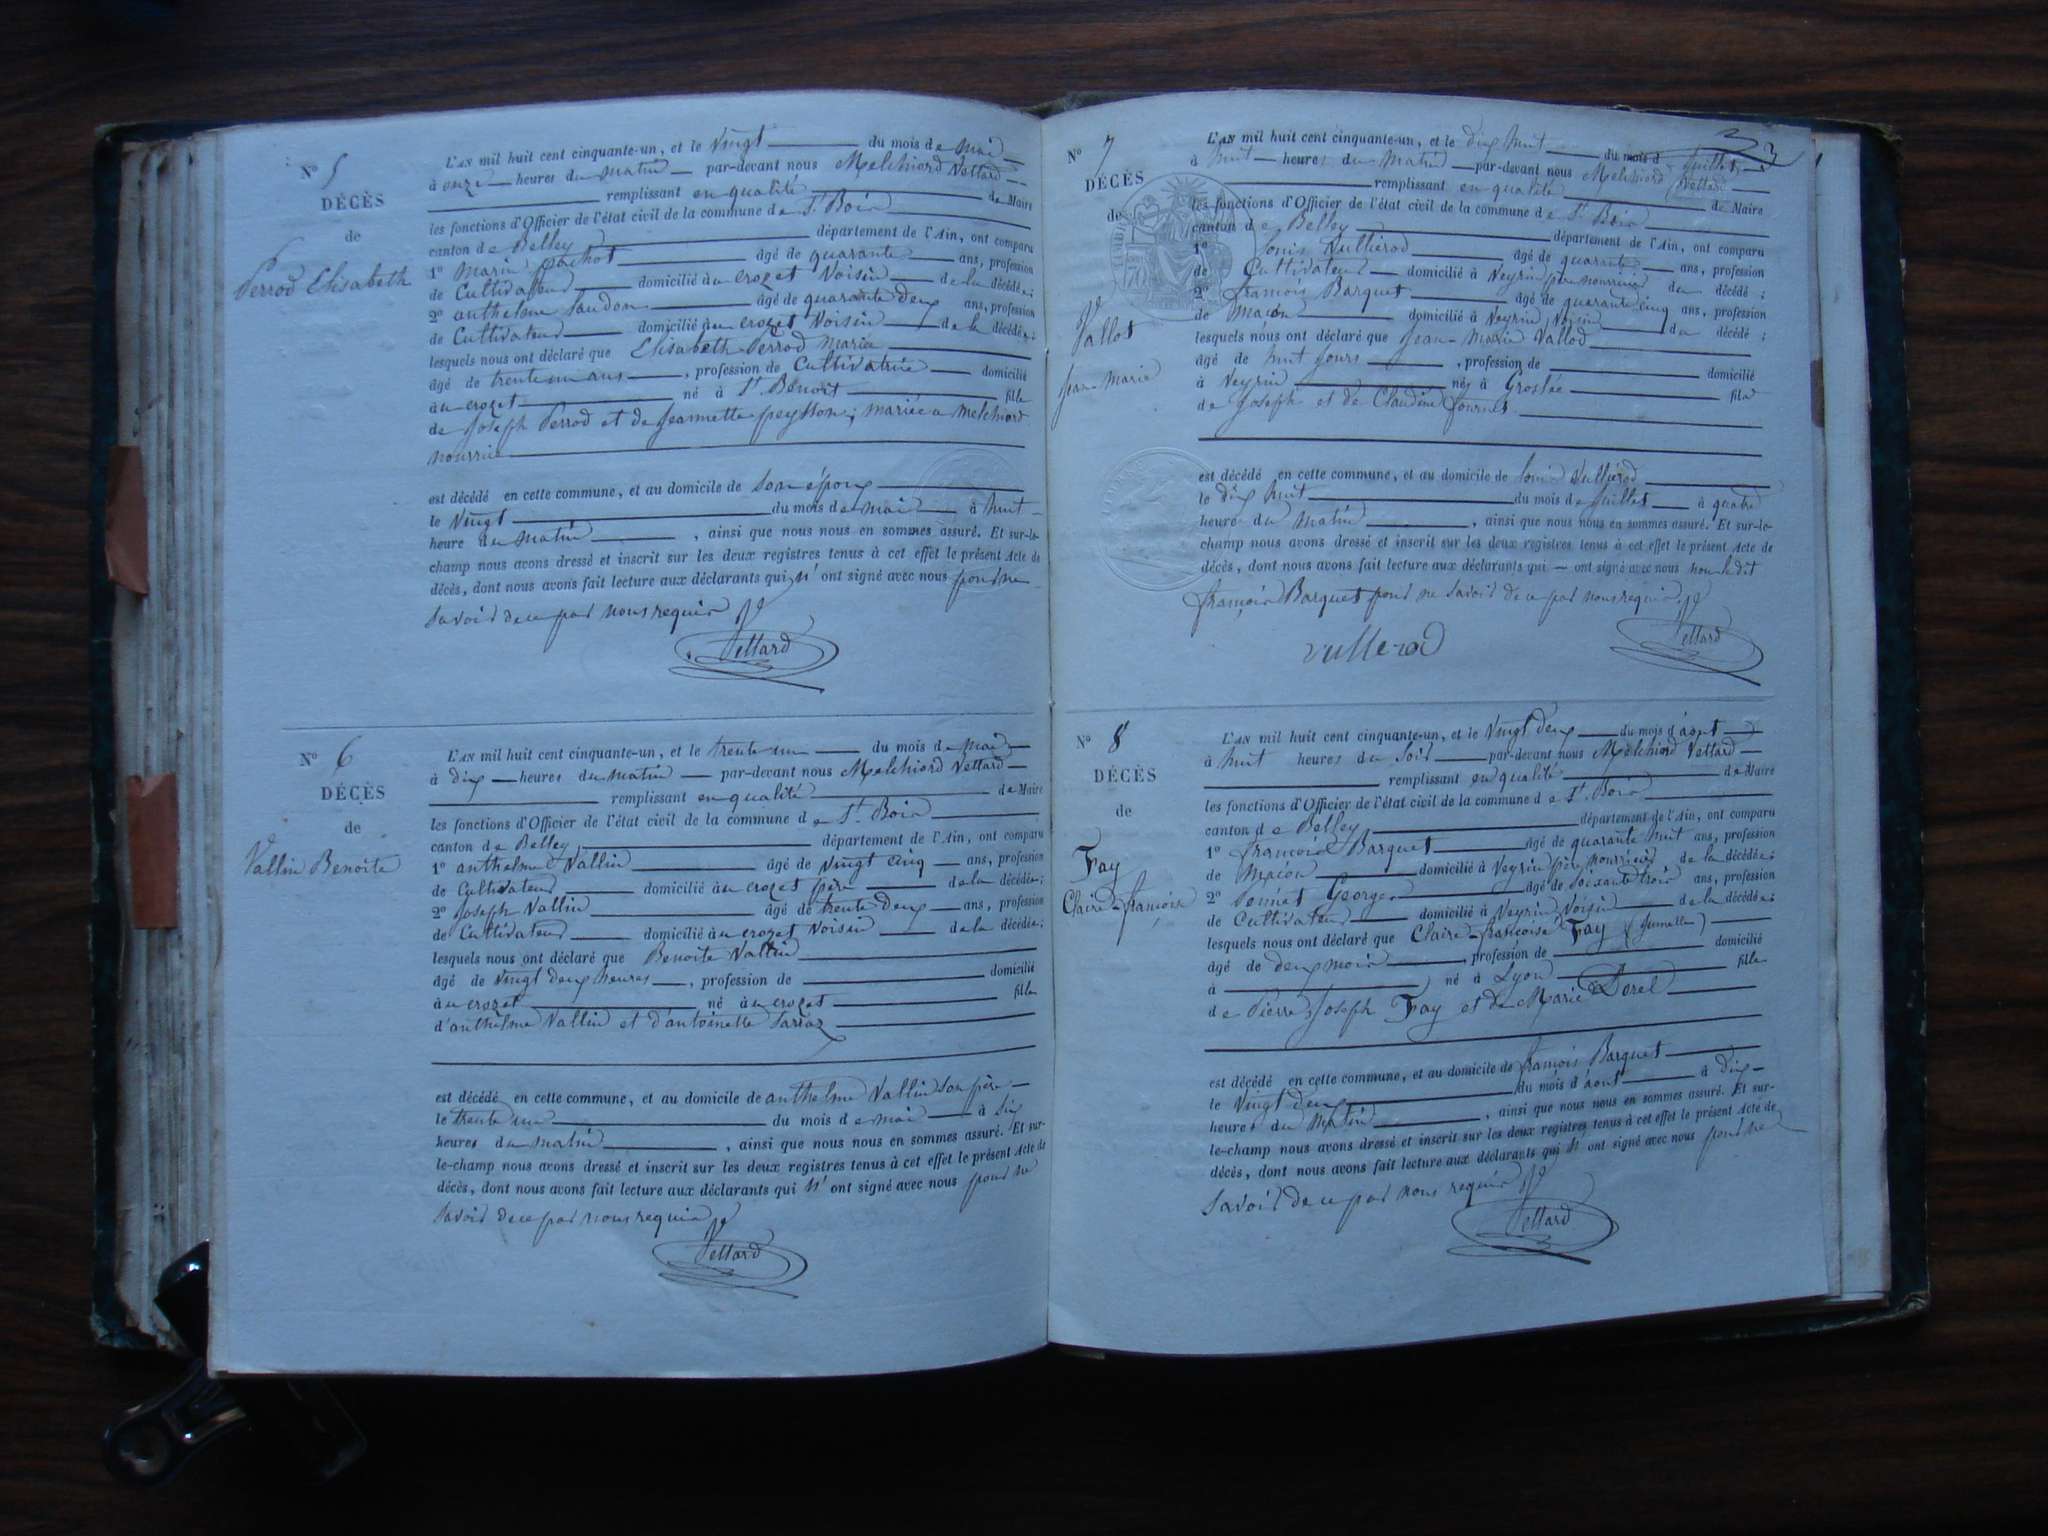 N° 5
DÉCÈS
de
Perrod Elisabeth
L'AN mil huit cent cinquante-un, et le vingt du mois de mai
à onze heures du matin par-devant nous Melchiord Vettard
remplissant en qualité de Maire
les fonctions d'Officier de l'état civil de la commune de St Bois
canton de Belley département de l'Ain, ont comparu
1° Marin Pochot âgé de quarante ans, profession
de Cultivateur domicilié au crozet Voisin de la décédée;
2° anthelme âgé de quarante deux ans, profession
de Cultivateur domicilié au crozet Voisin de la décédée;
lesquels nous ont déclaré que Elisabeth Perrod Maria
âgé de trente un ans, profession de Cultivatrice domicilié
au crozet né à St Benoit fille
de Joseph Perrod et de Jeannette peysson, mariée a Melchiord
nourrin
est décédé en cette commune, et au domicile de son époux
le vingt du mois de mai à huit
heure du matin, ainsi que nous nous en sommes assuré. Et sur-le-
champ nous avons dressé et inscrit sur les deux registres tenus à cet effet le présent Acte de
décès, dont nous avons fait lecture aux déclarants qui n'ont signé avec nous pour ne
savoir de ce par nous requis
Vettard
N° 6
DÉCÈS
de
Vallin Benoite
L'AN mil huit cent cinquante-un, et le trente un du mois de mai
à dix heures du matin par-devant nous Melchiord Vettard
remplissant en qualité de Maire
les fonctions d'Officier de l'état civil de la commune de St Bois
canton de Belley département de l'Ain, ont comparu
1° anthelme Vallin âgé de vingt cinq ans, profession
de Cultivateur domicilié au crozet père de la décédée;
2° Joseph Vallin âgé de trente deux ans, profession
de Cultivateur domicilié au crozet Voisin de la décédée;
lesquels nous ont déclaré que Benoite Vallin
âgé de vingt deux heures, profession de domicilié
au crozet né au crozet fille
d'anthelme Vallin et d'antoinette
est décédé en cette commune, et au domicile de anthelme Vallin son père
le trente un du mois de mai à six
heures du matin, ainsi que nous nous en sommes assuré. Et sur-
le-champ nous avons dressé et inscrit sur les deux registres tenus à cet effet le présent Acte de
décès, dont nous avons fait lecture aux déclarants qui n'ont signé avec nous pour ne
savoir de ce par nous requis
Vettard
3
N° 7
DÉCÈS
de
Vallot
Jean-Marie
L'AN mil huit cent cinquante-un, et le dix huit du mois d Juillet
à huit heures du Matin par-devant nous Melchiord Vettard
remplissant en qualité de Maire
les fonctions d'Officier de l'état civil de la commune de St Bois
canton de Belley département de l'Ain, ont comparu
1° Louis Vulliérod âgé de quarante ans, profession
de Cultivateur domicilié à Veyrin père nourricier du décédé;
2° françois Barquet âgé de quarante cinq ans, profession
de Maçon domicilié à Veyrin Voisin du décédé;
lesquels nous ont déclaré que Jean-Marie Vallod
âgé de huit jours, profession de domicilié
à Veyrin né à Groslée fils
de Joseph et de Claudine
est décédé en cette commune, et au domicile de Louis Vulliérod
le dix huit du mois de Juillet à quatre
heure du Matin, ainsi que nous nous en sommes assuré. Et sur-le-
champ nous avons dressé et inscrit sur les deux registres tenus à cet effet le présent Acte de
décès, dont nous avons fait lecture aux déclarants qui ont signé avec nous non ledit
françois Barquet pour ne savoir de ce par nous requis
vullerod
Vettard
N° 8
DÉCÈS
de
Fay
Claire-françoise
L'AN mil huit cent cinquante-un, et le vingt deux du mois d'aout
à huit heures du Soir par-devant nous Melchiord Vettard
remplissant en qualité de Maire
les fonctions d'Officier de l'état civil de la commune de St Bois
canton de Belley département de l'Ain, ont comparu
1° françois Barquet âgé de quarante huit ans, profession
de Maçon domicilié à Veyrin père nourricier de la décédée;
2° George âgé de soixante trois ans, profession
de Cultivateur domicilié à Veyrin Voisin de la décédée;
lesquels nous ont déclaré que Claire-françoise Fay (Jumelle)
âgé de deux mois, profession de domicilié
à né à Lyon fille
de Pierre Joseph Fay et de Marie Dorel
est décédé en cette commune, et au domicile de françois Barquet
le vingt deux du mois d'aout à dix
heures du Matin, ainsi que nous nous en sommes assuré. Et sur-
le-champ nous avons dressé et inscrit sur les deux registres tenus à cet effet le présent Acte de
décès, dont nous avons fait lecture aux déclarants qui n'ont signé avec nous pour ne
savoir de ce par nous requis
Vettard